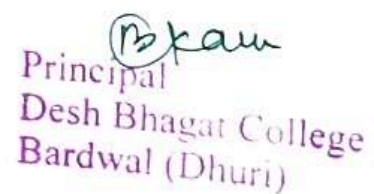 Bkaur
Principal
Desh Bhagat College
Bardwal (Dhuri)